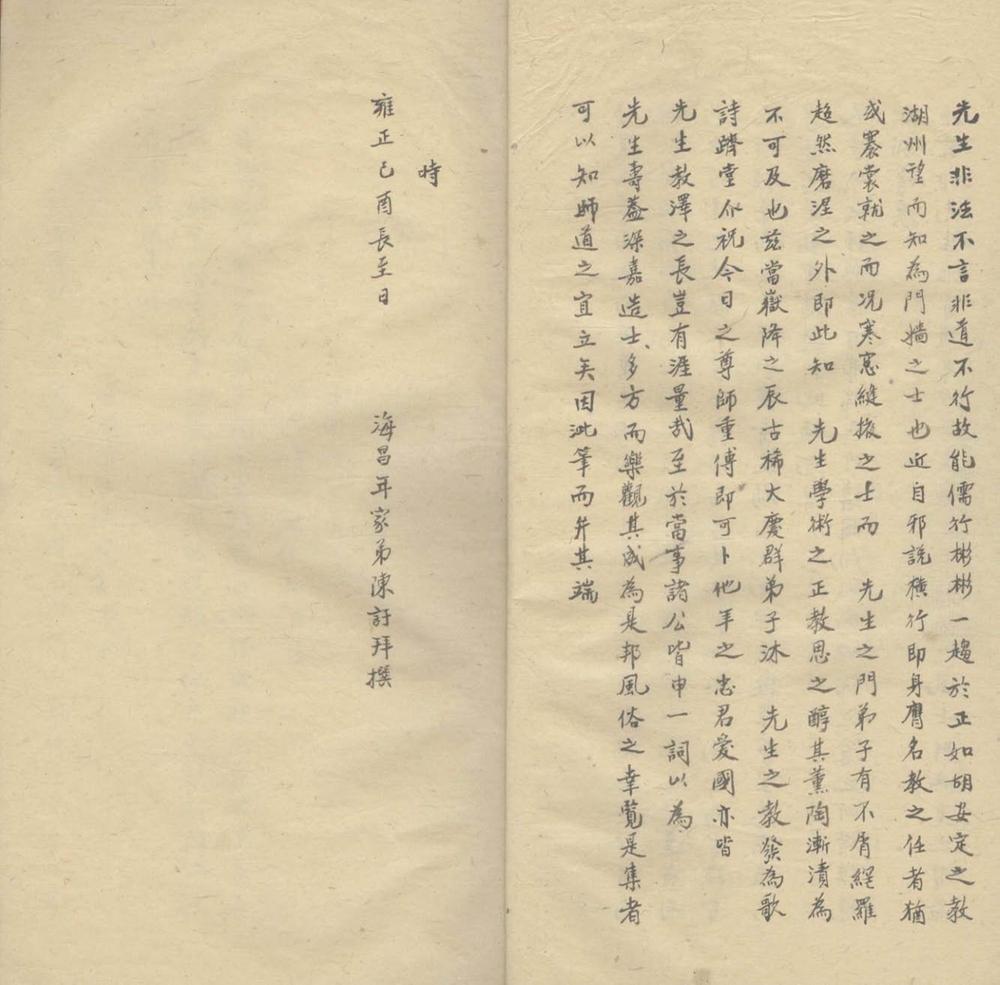 先生非法不言非道不行故能儒行彬彬一趨於正如胡安定之教
湖州望而知為門牆之士也近自邪說橫行即身膺名教之任者猶
或褰裳就之而況寒窓縫掖之士而　先生之門弟子有不屑經羅
超然磨涅之外即此知　先生學術之正教思之醇其薰陶漸漬為
不可及也茲當嶽降之辰古稀大慶群弟子沐　先生之教發為歌
詩躋堂介祝今日之尊師重傅即可卜他年之忠君愛國亦皆
先生教澤之長豈有涯量哉至於當事諸公皆申一詞以為
先生壽葢深嘉造士多方而樂觀其成為是邦風俗之幸覽是集者
可以知師道之宜立矣因泚筆而弁其端
時
雍正己酉長至日　　海昌年家弟陳訏拜撰